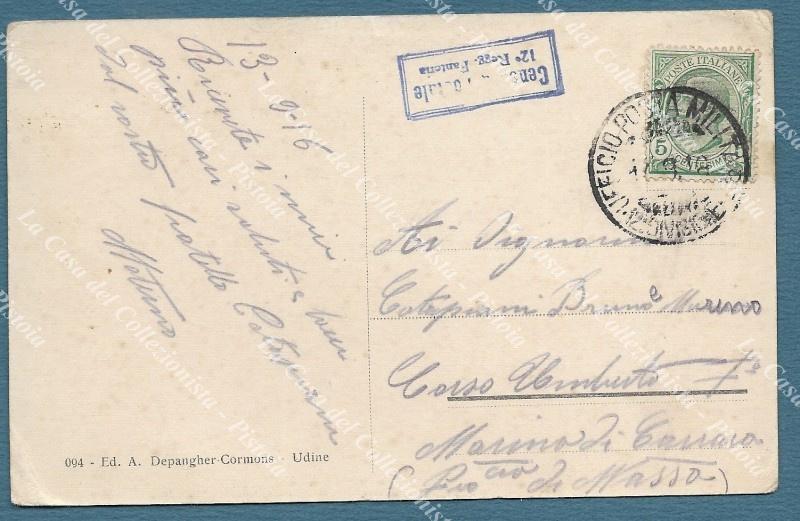 13-9-16
Ricevete i miei
più cari saluti e baci
dal vostro fratello
Censura Postale
12° Regg. Fanteria
POSTE ITALIANE
5
CENTESIMI
UFFICIO POSTA MILITARE
DIVISIONE
Ai Signorini
Bruno e
Corso Umberto 1°
Marina di Carrara
(Provcia di Massa)
094 - Ed. A. Depangher-Cormons Udine
La Casa del Collezionista - Pistoia